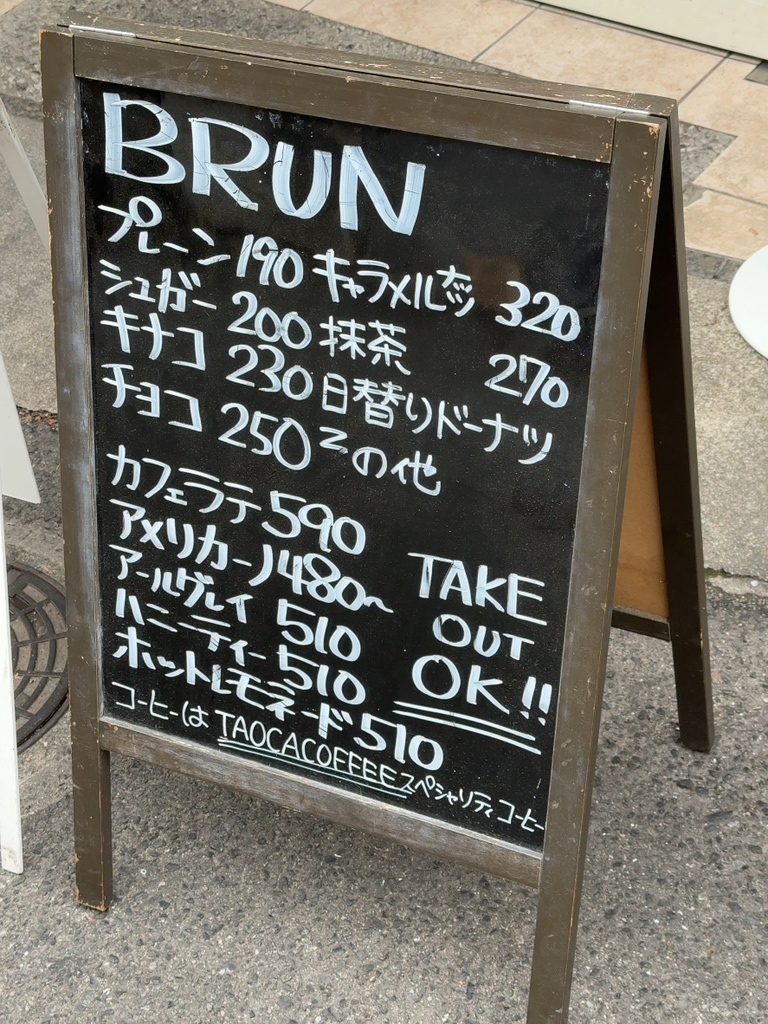 BRUN
プレーン 190 キャラメルナッツ 320
シュガー 200 抹茶 270
キナコ 230 日替りドーナツ
チョコ 250 その他
カフェラテ 590
アメリカーノ 480~
アールグレイ 510
ハニーティー 510
ホットレモネード 510
TAKE
OUT
OK!!
コーヒーは TAOCACOFFEE スペシャリティコーヒー